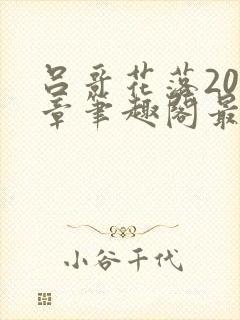 吕哥花落20
章笔趣阁最
小谷千代